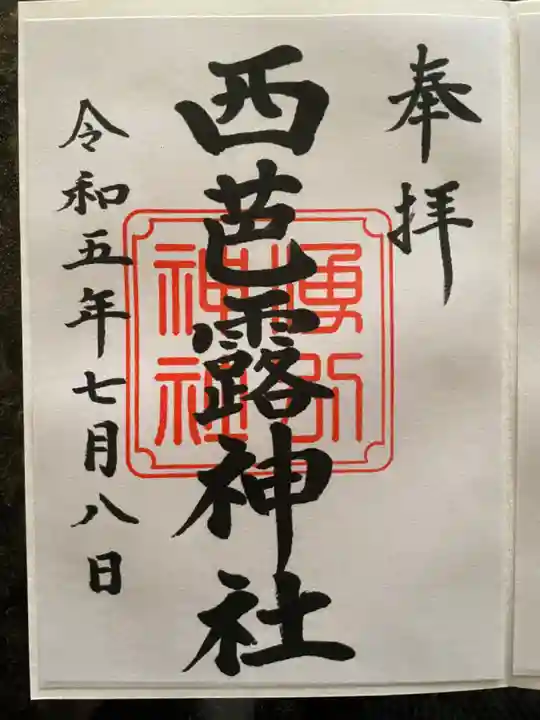 奉拝
西芭露神社
湧別神社
令和五年七月八日